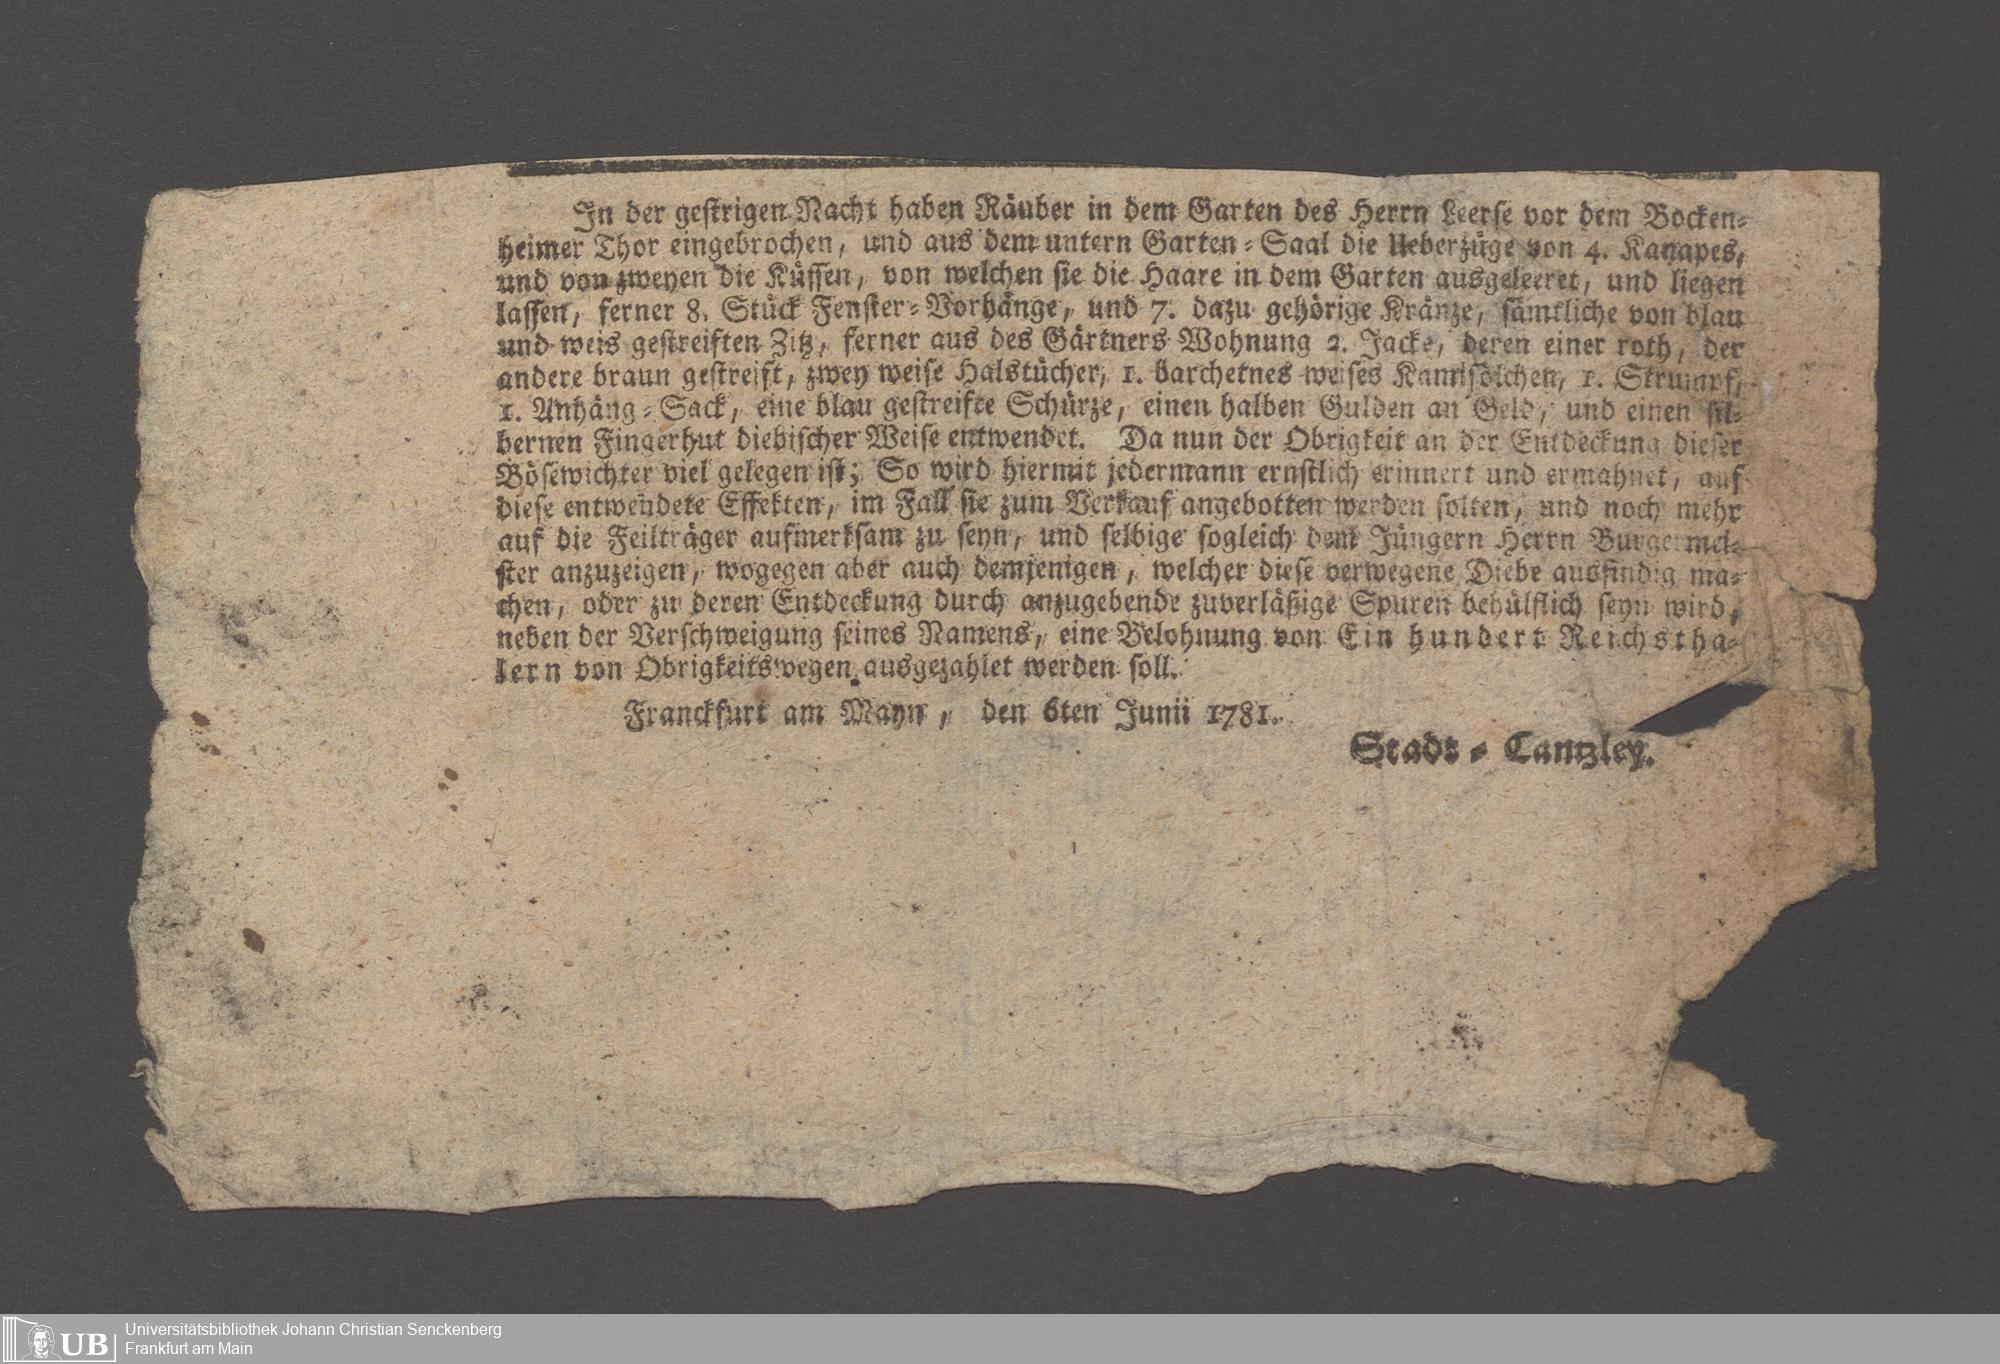 In der gestrigen Nacht haben Räuber in dem Garten des Herrn Leerse vor dem Bocken-
heimer Thor eingebrochen, und aus dem untern Garten-Saal die Ueberzüge von 4. Kanapes,
und von zweyen die Küssen, von welchen sie die Haare in dem Garten ausgeleeret, und liegen
lassen, ferner 8. Stück Fenster-Vorhänge, und 7. dazu gehörige Kränze, sämtliche von blau
und weis gestreiften Zitz, ferner aus des Gärtners Wohnung 2. Jacke, deren einer roth, der
andere braun gestreift, zwey weise Halstücher, 1. barchetnes weises Kamisölchen, 1. Strumpf,
1. Anhäng-Sack, eine blau gestreifte Schürze, einen halben Gulden an Geld, und einen sil-
bernen Fingerhut diebischer Weise entwendet. Da nun der Obrigkeit an der Entdeckung dieser
Bösewichter viel gelegen ist; So wird hiermit jedermann ernstlich erinnert und ermahnet, auf
diese entwendete Effekten, im Fall sie zum Verkauf angebotten werden solten, und noch mehr
auf die Feilträger aufmerksam zu seyn, und selbige sogleich dem Jüngern Herrn Burgermei-
ster anzuzeigen, wogegen aber auch demjenigen, welcher diese verwegene Diebe ausfindig ma-
chen, oder zu deren Entdeckung durch anzugebende zuverläßige Spuren behülflich seyn wird,
neben der Verschweigung seines Namens, eine Belohnung von Ein hundert Reichstha-
lern von Obrigkeitswegen ausgezahlet werden soll.
Franckfurt am Mayn, den 6ten Junii 1781.
Stadt-Cantzley.
UB
Universitätsbibliothek Johann Christian Senckenberg
Frankfurt am Main